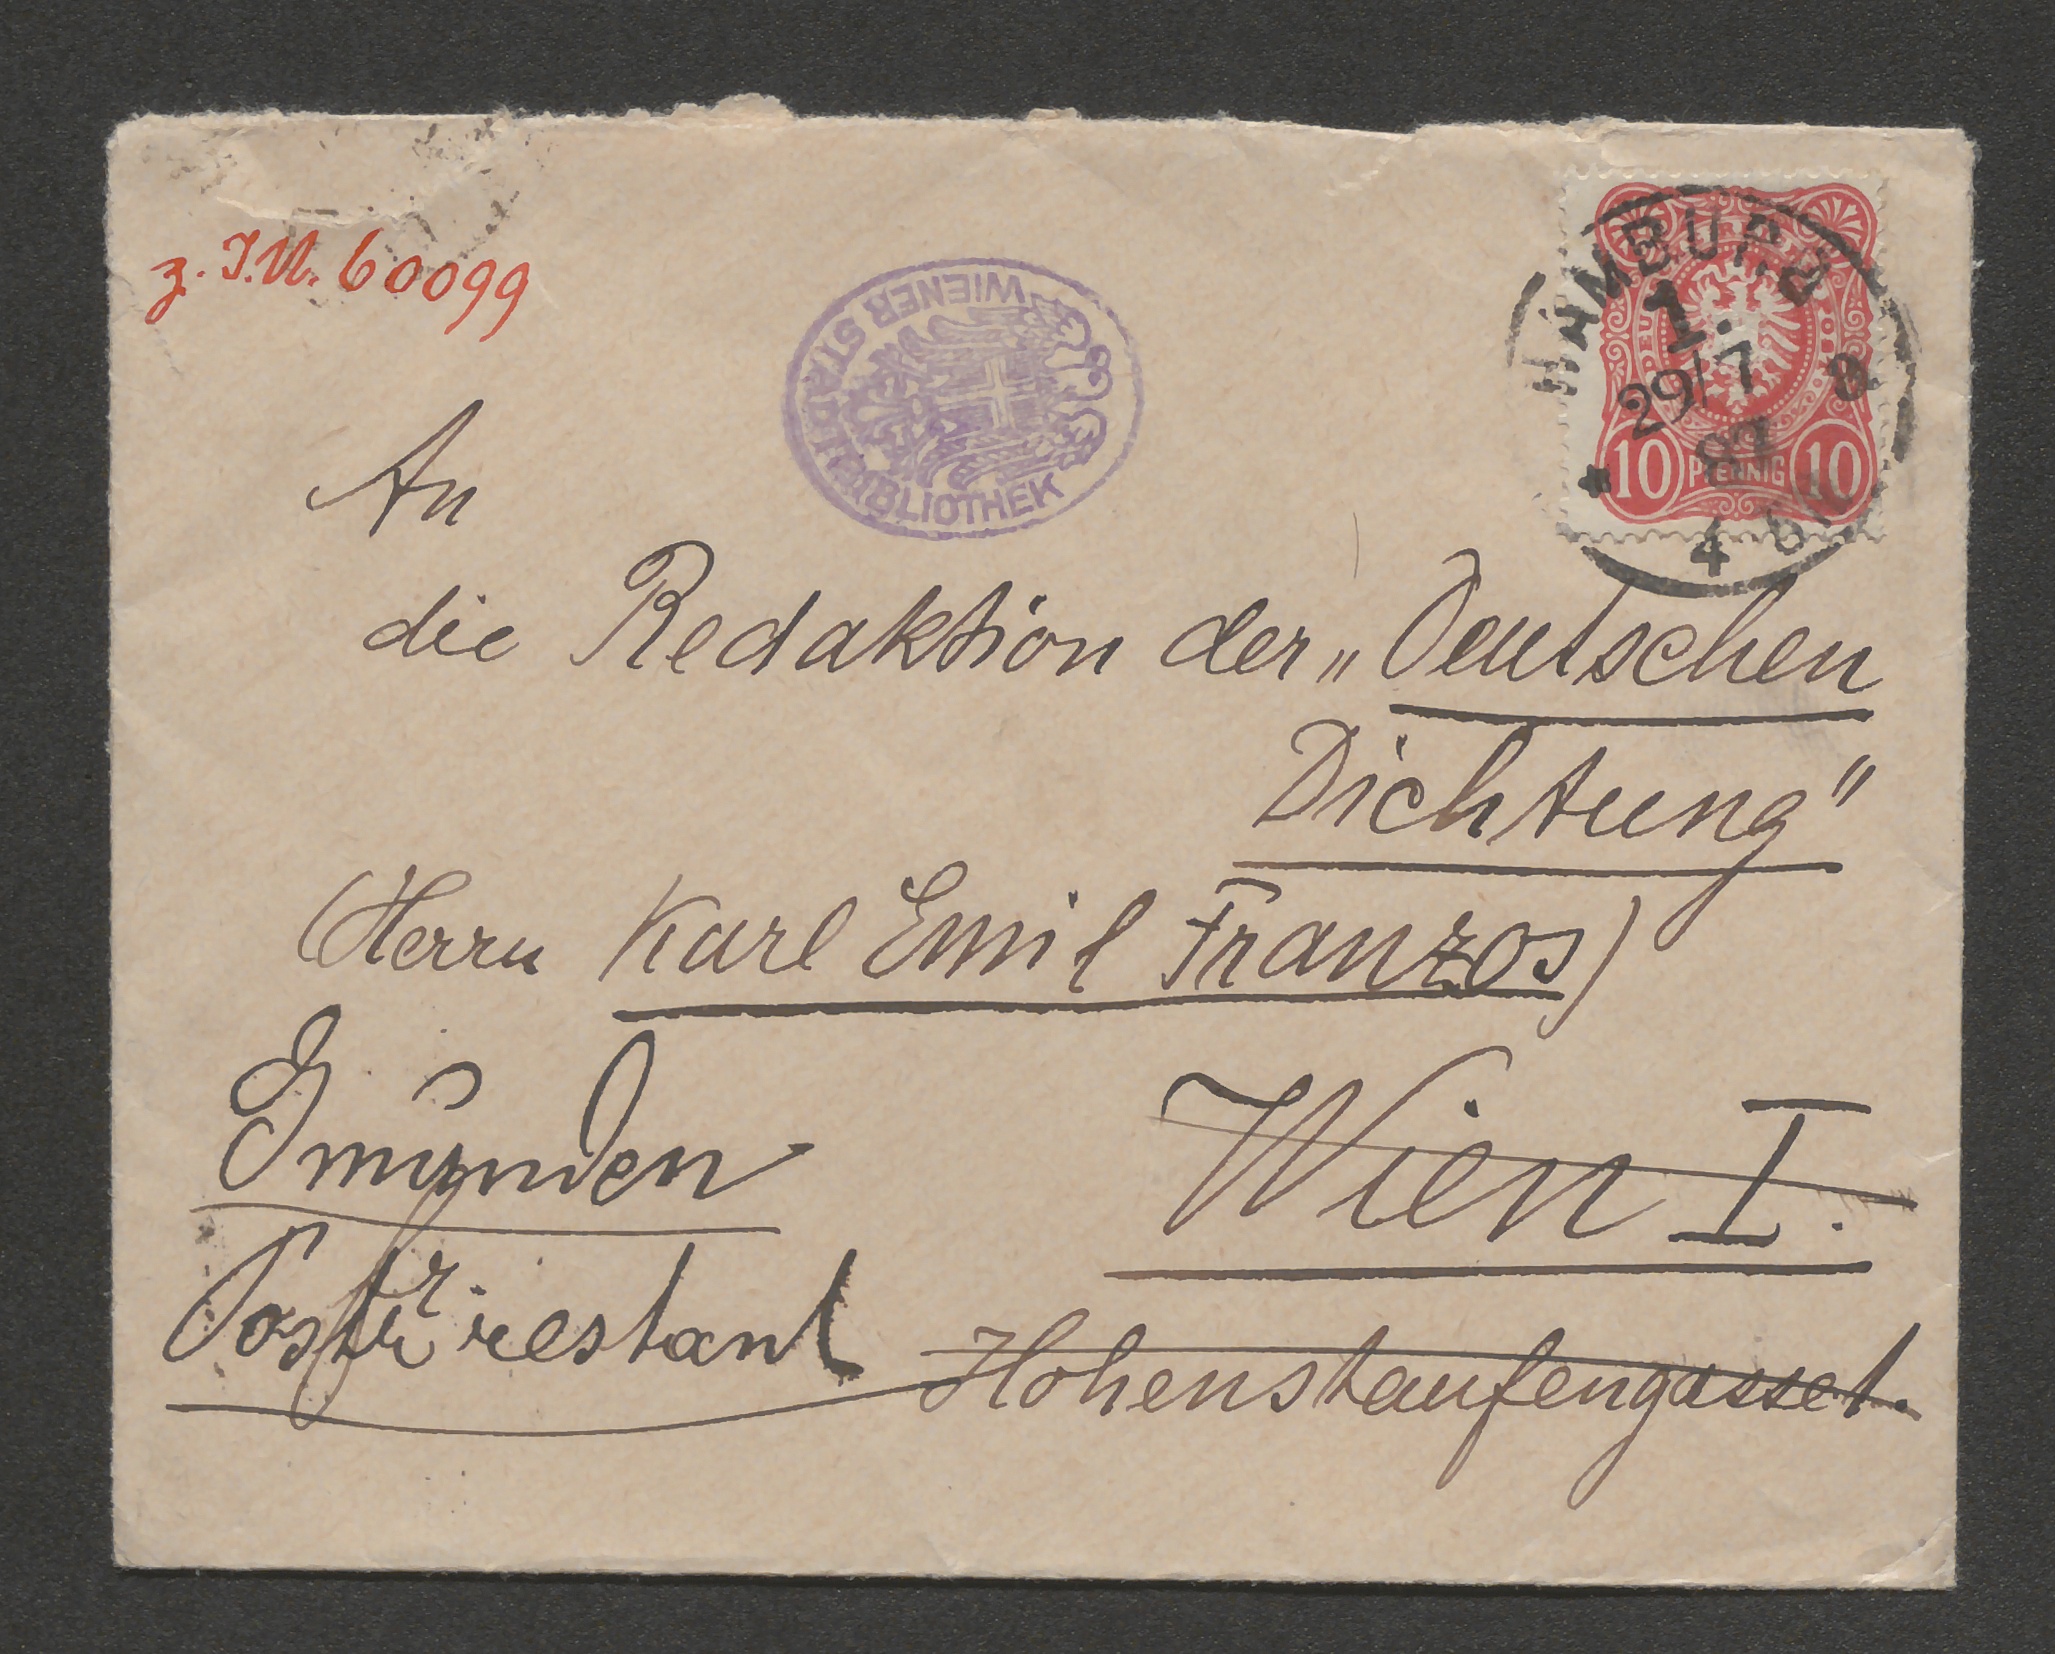 z. I.N. 60099
WIENER STADTBIBLIOTHEK
HAMBURG
1.
29/7
87
4
10 PFENNIG 10
An
die Redaktion der „Deutschen
Dichtung"
(Herrn Karl Emil Franzos)
Wien I.
Gmunden
restant
Hohenstaufengasse